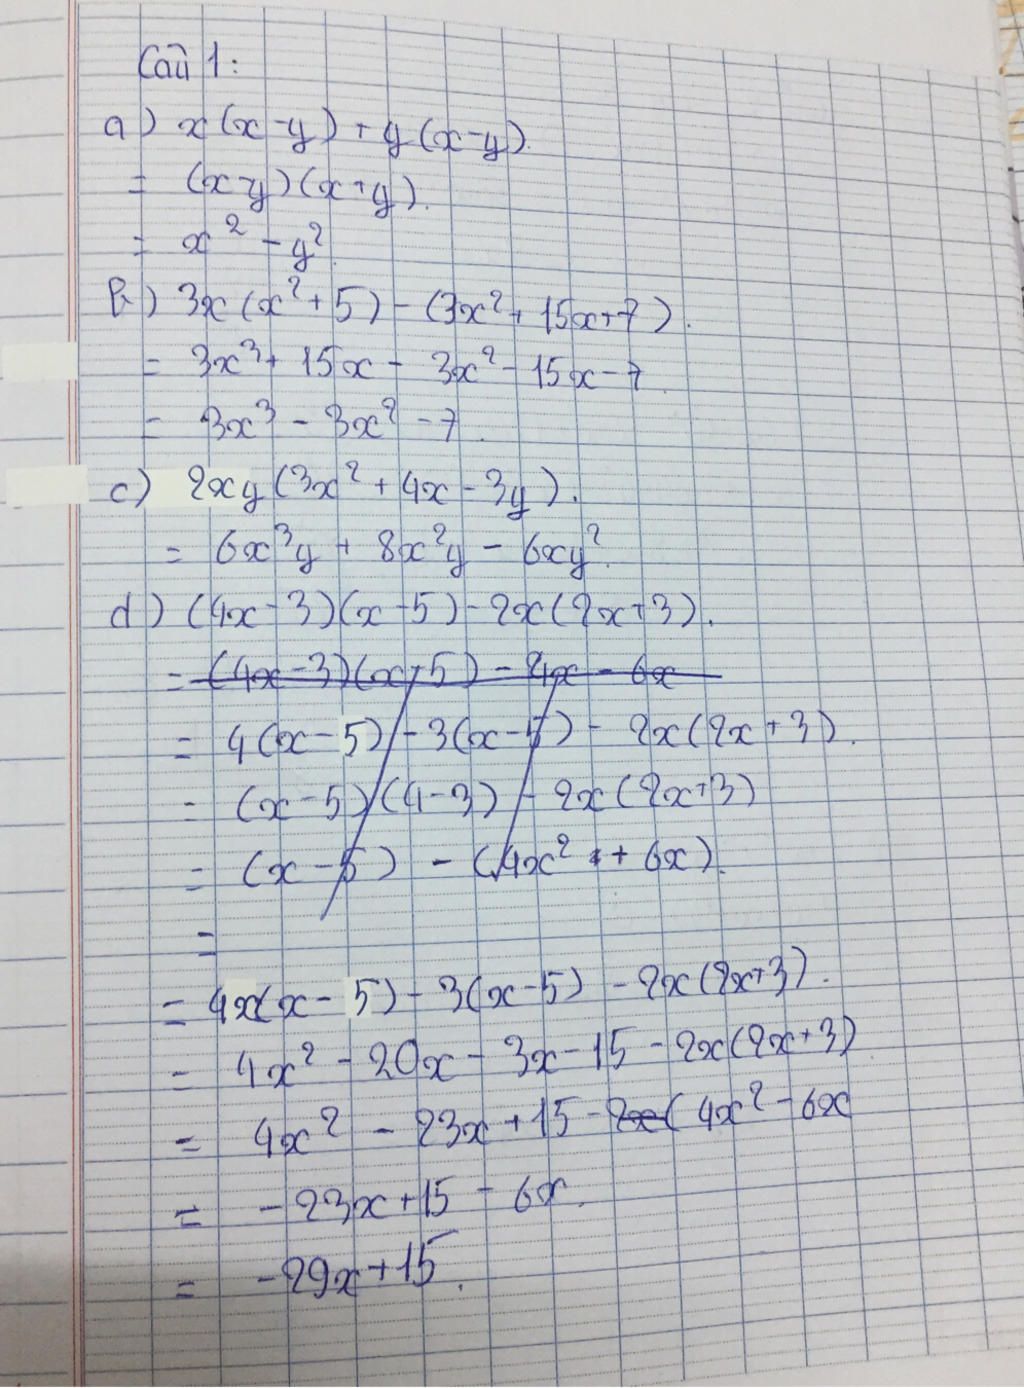 Câu 1:
a) x(x-y) + y(x-y).
= (x-y)(x+y).
= x² - y².
b) 3x(x²+5) - (3x² + 15x+7).
= 3x³ + 15x - 3x² - 15x - 7
= 3x³ - 3x² - 7.
c) 2xy(3x² + 4x - 3y).
= 6x³y + 8x²y - 6xy².
d) (4x-3)(x-5) - 2x(2x+3).
= (4x-3)(x+5) - 4x - 6x
= 4(x-5) - 3(x-5) - 2x(2x+3).
= (x-5)(4-3) - 2x(2x+3)
= (x-5) - (4x² + 6x).
=
= 4x(x-5) - 3(x-5) - 2x(2x+3).
= 4x² - 20x - 3x - 15 - 2x(2x+3)
= 4x² - 23x + 15 - 2x( 4x² - 6x
= -23x + 15 - 6x.
= -29x + 15.